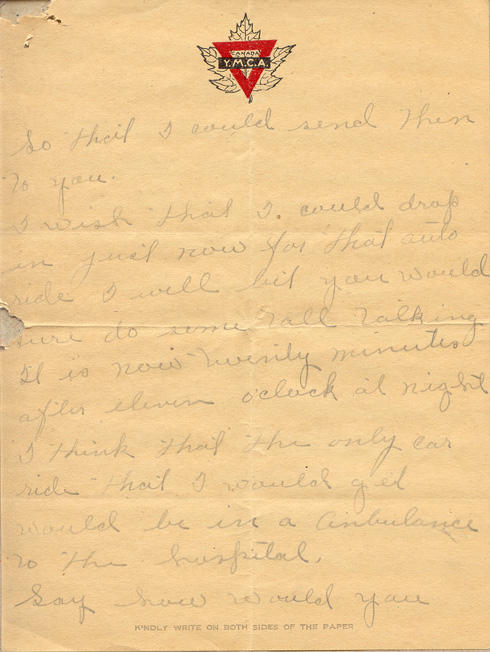 CANADA
Y.M.C.A.
So that I could send them
to you.
I wish that I. could drop
in just now for that auto
ride I will bet you would
sure do some tall talking
It is now twenty minutes
after eleven o'clock at night
I think that the only car
ride that I would get
would be in a Ambulance
to the hospital.
Say how would you
KINDLY WRITE ON BOTH SIDES OF THE PAPER